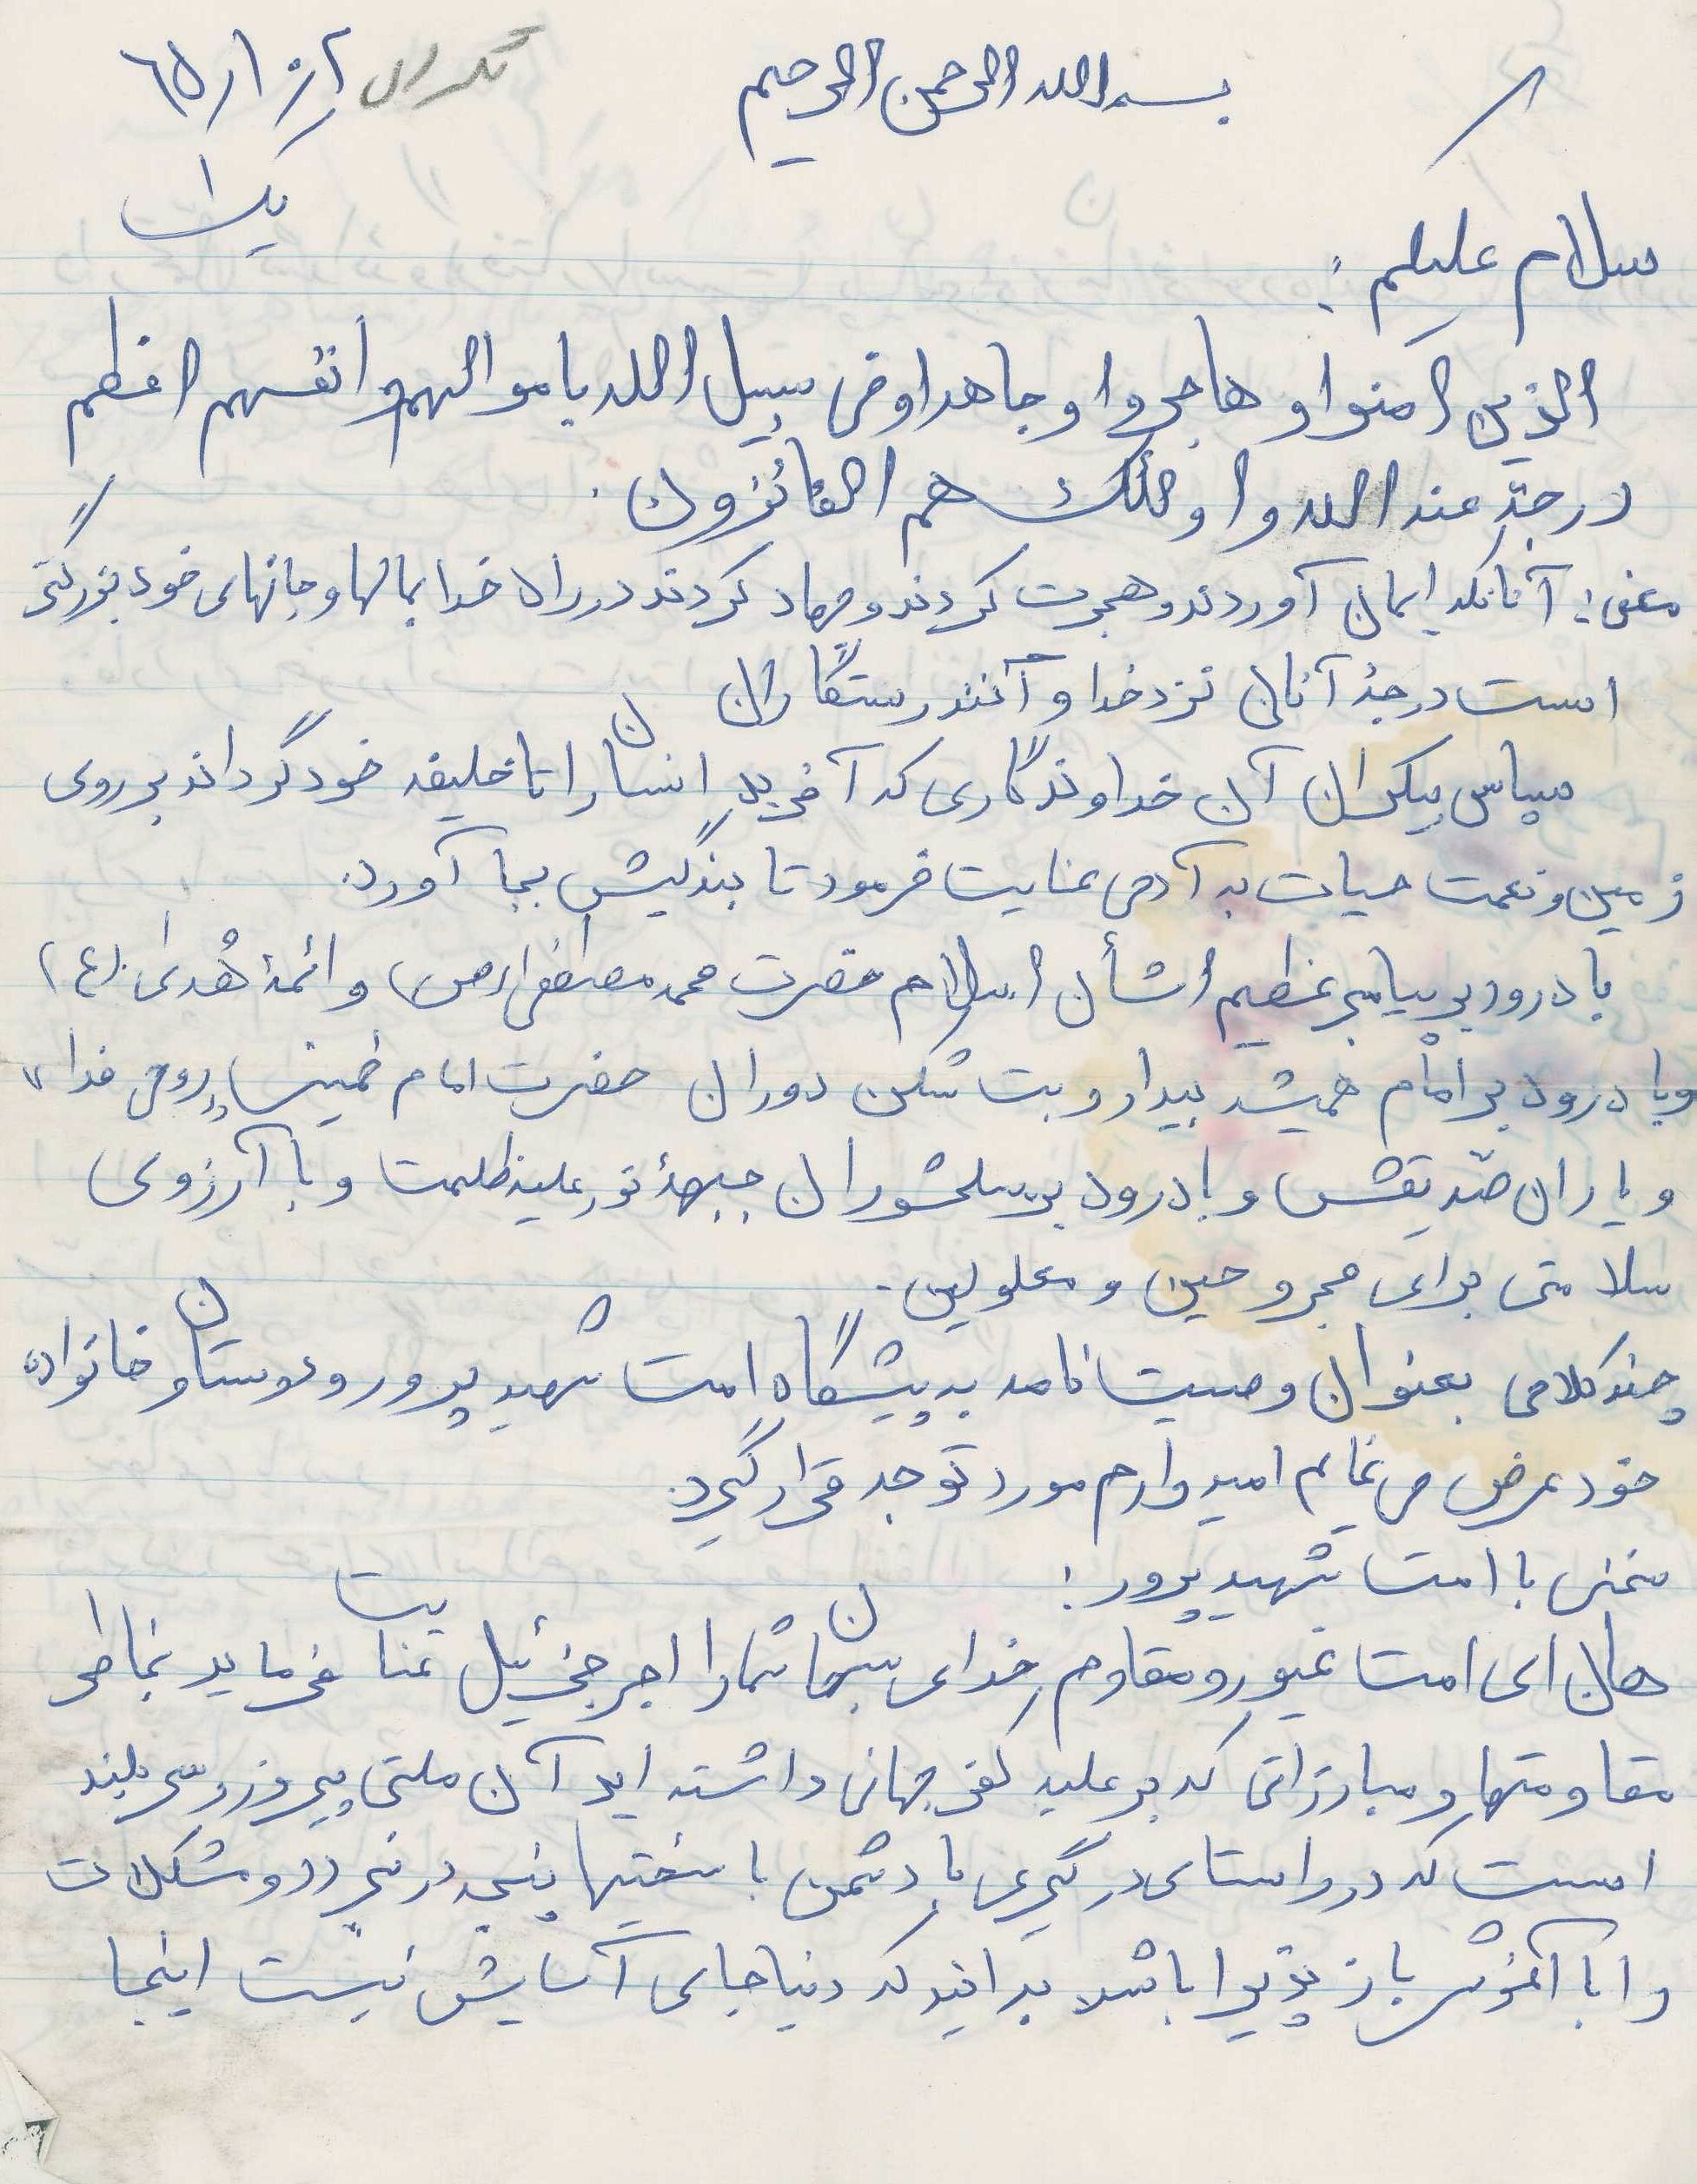 بسم الله الرحمن الرحیم
۶۵/۱/۲۰
سلام علیکم :
الذین امنوا و هاجروا و جاهدوا فی سبیل الله باموالهم و انفسهم اعظم
درجة عند الله و اولئک هم الفائزون .
معنی : آنانکه ایمان آوردند و هجرت کردند و جهاد کردند در راه خدا بمالها و جانهای خود بزرگتر
است درجهٔ آنان نزد خدا و آنند رستگاران
سپاس بیکران آن خداوندگاری که آفرید انسان را تا خلیفه خود گرداند بر روی
زمین و نعمت حیات به آدمی عنایت فرمود تا بندگیش بجا آورد .
با درود بر پیامبر عظیم اشأن اسلام حضرت محمد مصطفی (ص) و ائمهٔ هُدیٰ (ع)
و با درود بر امام همیشه بیدار و بت شکن دوران حضرت امام خمینی روحی فداه
و یاران صدّیقش و با درود بر سلحشوران جبههٔ نور علیه ظلمت و با آرزوی
سلامتی برای مجروحین و معلولین .
چند کلامی بعنوان وصیت نامه به پیشگاه امت شهید پرور و دوستان و خانواده
خود عرض می نمایم امیدوارم مورد توجه قرار گیرد .
سخنی با امت شهید پرور :
هان ای امت غیور و مقاوم خدای سبحان شما را اجر جزیل عنایت فرماید بخاطر
مقاومتها و مبارزاتی که بر علیه کفر جهانی داشته اید آن ملتی پیروز و سربلند
است که در راستای درگیری با دشمن با سختیها پنجه در نبرد و مشکلات
را با آغوش باز پذیرا باشد بدانید که دنیا جای آسایش نیست اینجا